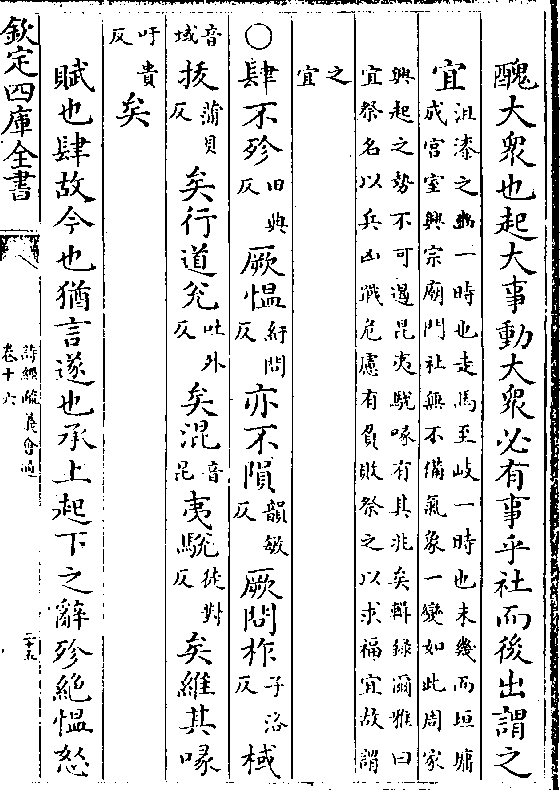 醜大衆也起大事動大衆必有事乎社而後出謂之
宜沮漆之幽一時也走馬至岐一時也未幾而垣墉
成宫室興宗廟門社無不備氣象一變如此周家
興起之勢不可遏昆夷駾喙有其兆矣輯録爾雅曰
宜祭名以兵凶戰危慮有負敗祭之以求福宜故謂
之
宜
○肆不殄田典反厥愠紆問反亦不隕韻敏反厥問柞子洛反棫
音域拔蒲貝反矣行道兊吐外反矣混音昆夷駾徒對反矣維其喙
吁貴反矣
賦也肆故今也猶言遂也承上起下之辭殄絶愠怒
欽定四庫全書
詩經疏義會通
卷十六
二十五